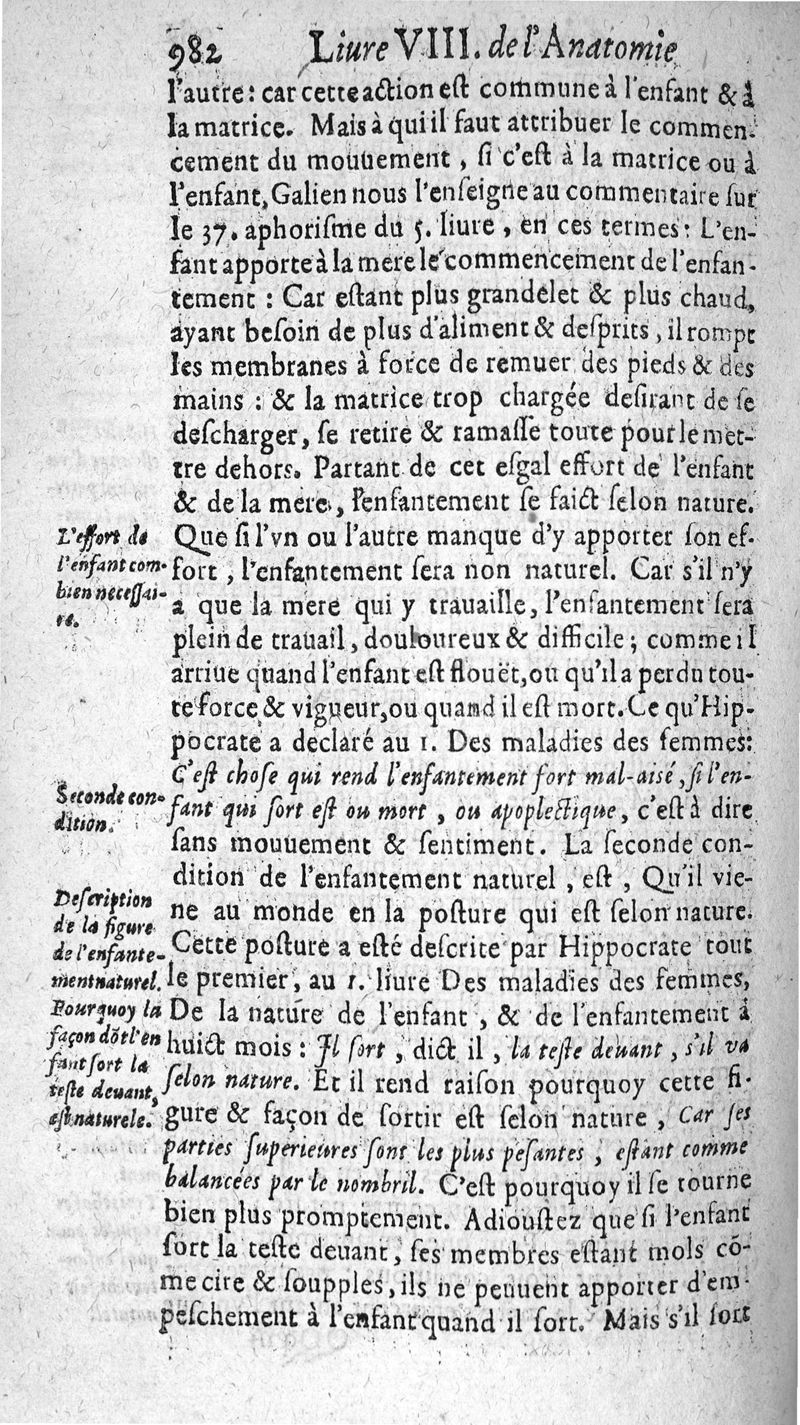 982 Liure VIII. de l'Anatomie
l'autre: car cette action est commune à l'enfant & à
la matrice. Mais à qui il faut attribuer le commen-
cement du mouuement, si c'est à la matrice ou à
l'enfant, Galien nous l'enseigne au commentaire sur
le 37. aphorisme du 5. liure, en ces termes: L'en-
fant apporte à la mere le commencement de l'enfan-
tement : Car estant plus grandelet & plus chaud,
ayant besoin de plus d'aliment & desprits, il rompt
les membranes à force de remuer des pieds & des
mains : & la matrice trop chargée desirant de se
descharger, se retire & ramasse toute pour le met-
tre dehors. Partant de cet esgal effort de l'enfant
& de la mere, l'enfantement se faict selon nature.
Que si l'vn ou l'autre manque d'y apporter son ef-
fort, l'enfantement sera non naturel. Car s'il n'y
a que la mere qui y trauaille, l'enfantement sera
plein de trauail, douloureux & difficile; comme il
arriue quand l'enfant est flouët, ou qu'il a perdu tou-
te force & vigueur, ou quand il est mort. Ce qu'Hip-
pocrate a declaré au 1. Des maladies des femmes:
C'est chose qui rend l'enfantement fort mal-aisé, si l'en-
fant qui sort est ou mort, ou apoplectique, c'est à dire
sans mouuement & sentiment. La seconde con-
dition de l'enfantement naturel, est, Qu'il vie-
ne au monde en la posture qui est selon nature.
Cette posture a esté descrite par Hippocrate tout
le premier, au 1. liure Des maladies des femmes,
De la nature de l'enfant, & de l'enfantement à
huict mois : Il sort, dict il, la teste deuant, s'il va
selon nature. Et il rend raison pourquoy cette fi-
gure & façon de sortir est selon nature, Car ses
parties superieures sont les plus pesantes, estant comme
balancées par le nombril. C'est pourquoy il se tourne
bien plus promptement. Adioustez que si l'enfant
sort la teste deuant, ses membres estant mols cō-
me cire & soupples, ils ne peuuent apporter d'em-
peschement à l'enfant quand il sort. Mais s'il sort
L'effort de
l'enfant com-
bien necessai-
re.
Seconde con-
dition.
Description
de la figure
de l'enfante-
ment naturel.
Pourquoy la
façon dōt l'en
fant sort la
teste deuant,
est naturele.